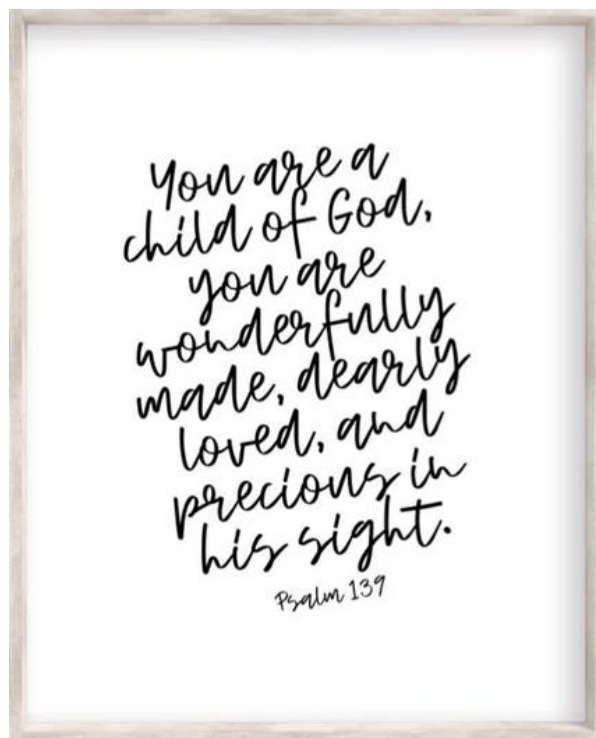 You are a
child of God,
you are
wonderfully
made, dearly
loved, and
precious in
his sight.
Psalm 139